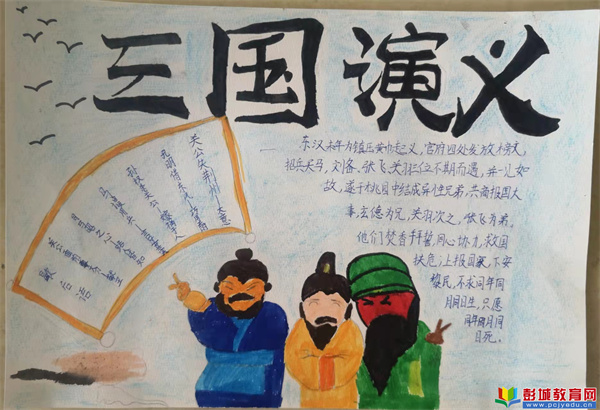 三国演义
东汉末年为镇压黄巾起义,官府四处发放榜文,
招兵买马,刘备、张飞、关羽三位不期而遇,并一见如
故,遂于桃园中结成异姓兄弟,共商报国大
事。玄德为兄,关羽次之,张飞为弟。
他们焚香拜誓,同心协力,救国
扶危;上报国家,下安
黎民,不求同年同
月同日生,只愿
同年同月同
日死。
关公失荆州—大意
歇后语
彭城教育网
www.pcjyedu.cn